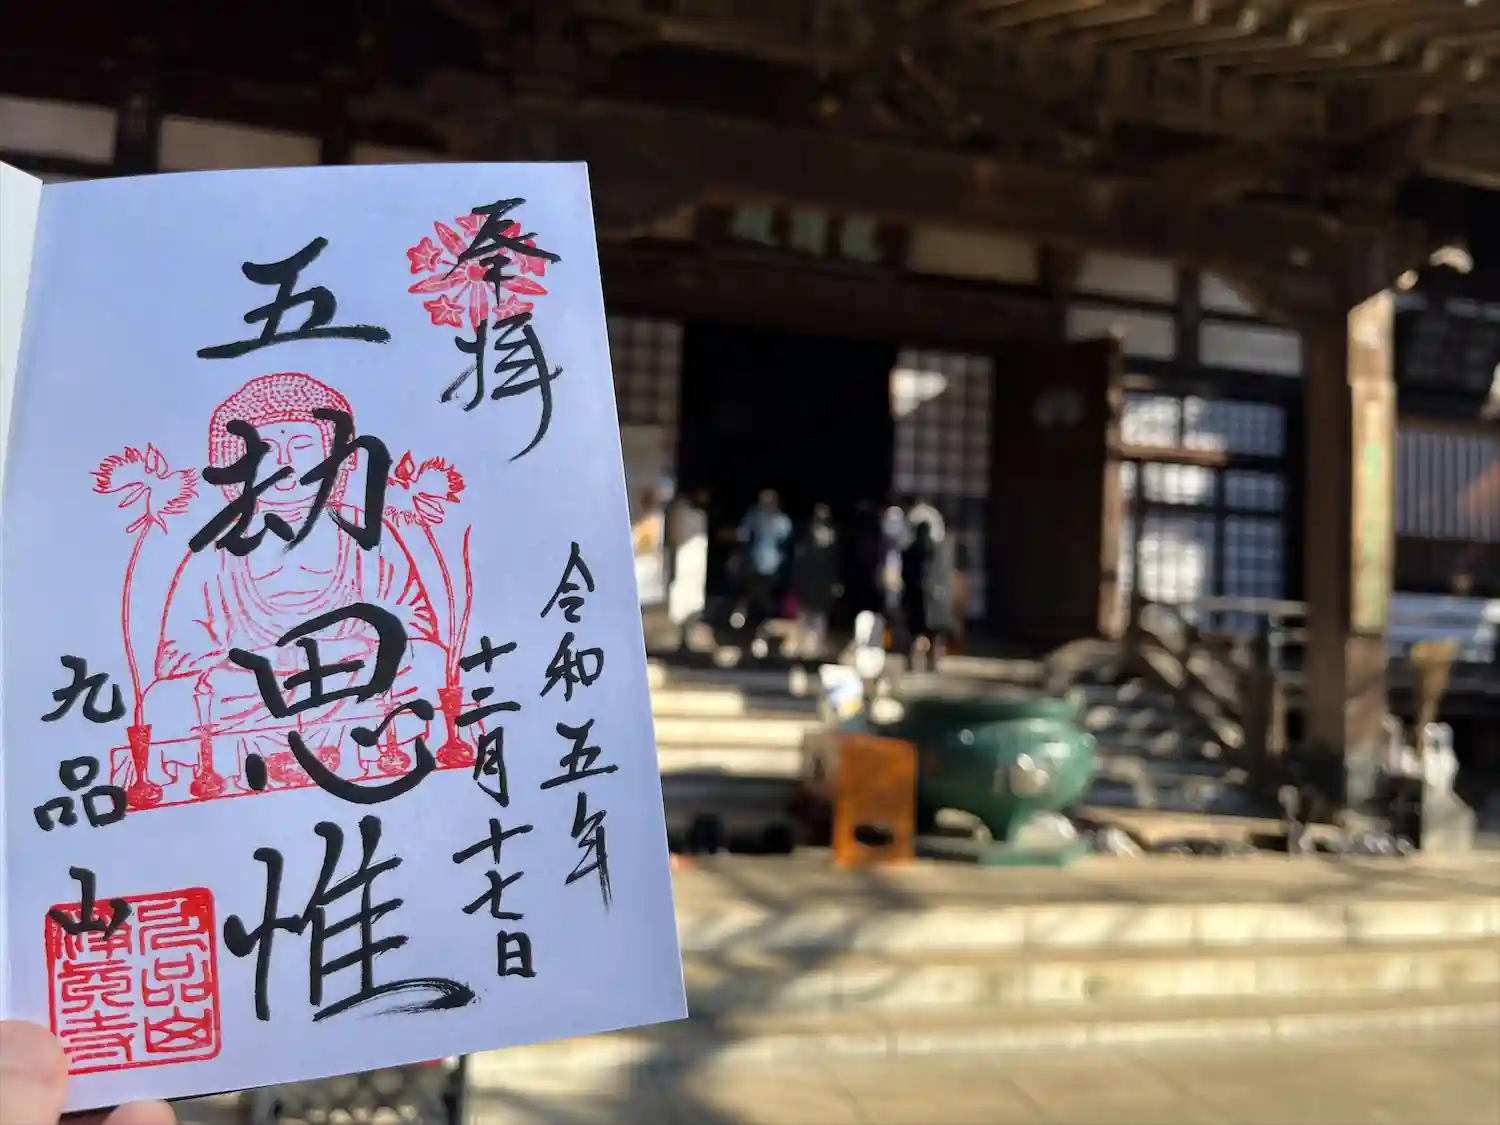 奉拝
令和五年
十二月十七日
五劫思惟
九品山
九品山
浄真寺